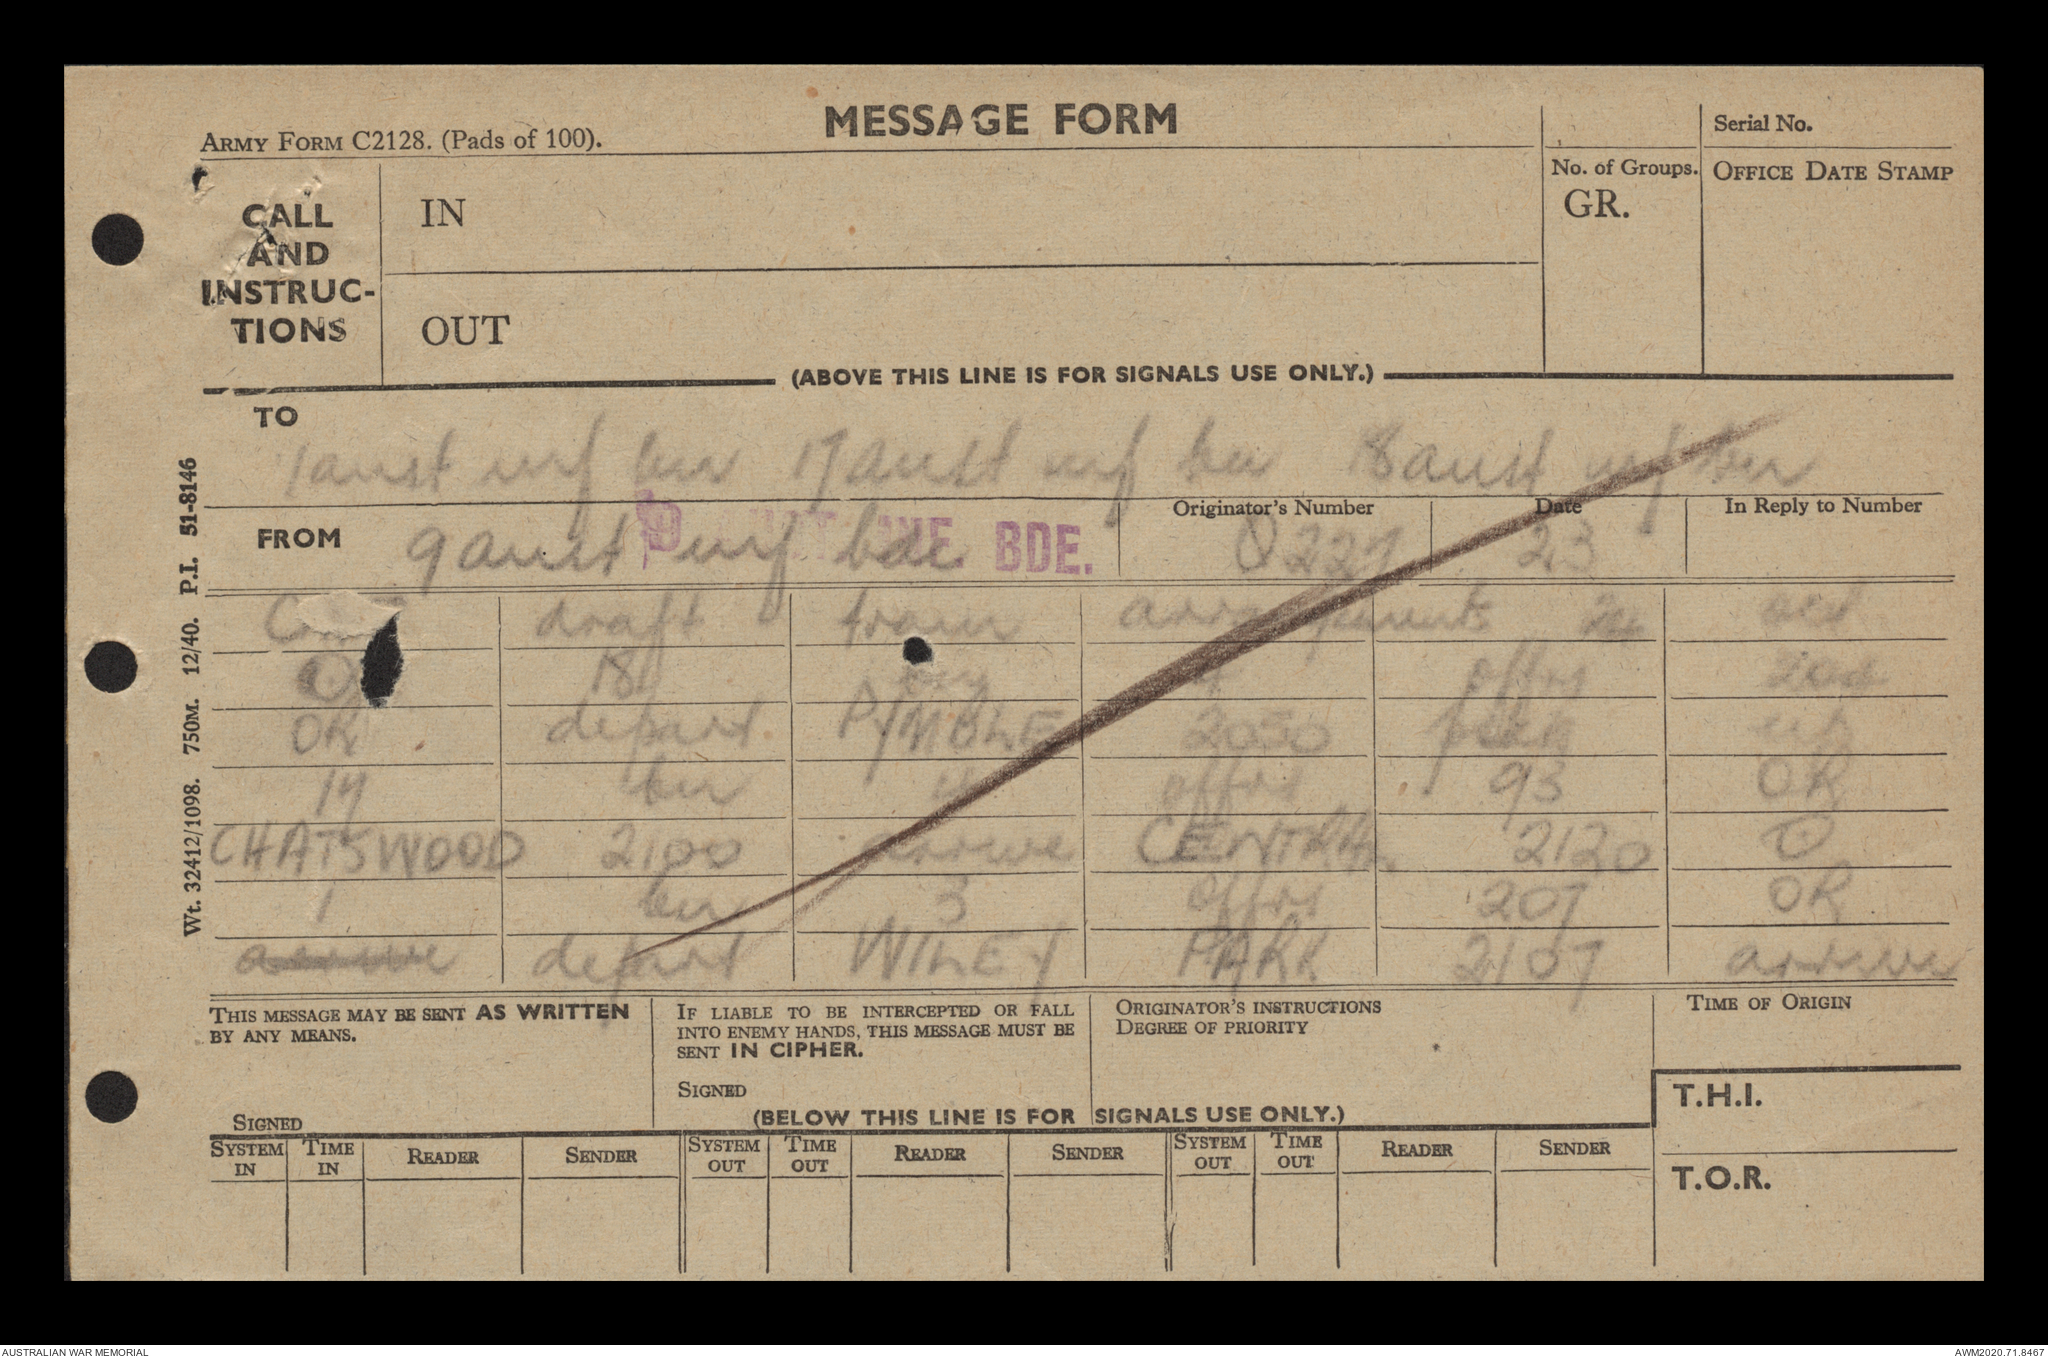 MESSAGE FORM
ARMY FORM C2128. (Pads of 100).
Serial No.
No. of Groups.
GR.
OFFICE DATE STAMP
CALL
AND
INSTRUC-
TIONS
IN
OUT
(ABOVE THIS LINE IS FOR SIGNALS USE ONLY.)
TO
1 aust inf bn 17 aust inf bn 18 aust inf bn
FROM
9 aust inf bde
BDE.
Originator's Number
O227
Date
23
In Reply to Number
draft train arrangements 24 oct
18 bn 4 offrs
OR depart PYMBLE 2050 pick up
17 bn 4 offrs 93 OR
CHATSWOOD 2100 arrive CENTRAL 2120
1 bn 3 offrs 207 OR
depart WILEY PARK 2107 arrive
Wt. 32412/1098. 750M. 12/40. P.I. 51-8146
THIS MESSAGE MAY BE SENT AS WRITTEN
BY ANY MEANS.
SIGNED
IF LIABLE TO BE INTERCEPTED OR FALL
INTO ENEMY HANDS, THIS MESSAGE MUST BE
SENT IN CIPHER.
SIGNED
ORIGINATOR'S INSTRUCTIONS
DEGREE OF PRIORITY
TIME OF ORIGIN
T.H.I.
T.O.R.
(BELOW THIS LINE IS FOR SIGNALS USE ONLY.)
SYSTEM IN TIME IN READER SENDER SYSTEM OUT TIME OUT READER SENDER SYSTEM OUT TIME OUT READER SENDER
AUSTRALIAN WAR MEMORIAL
AWM2020.71.8467